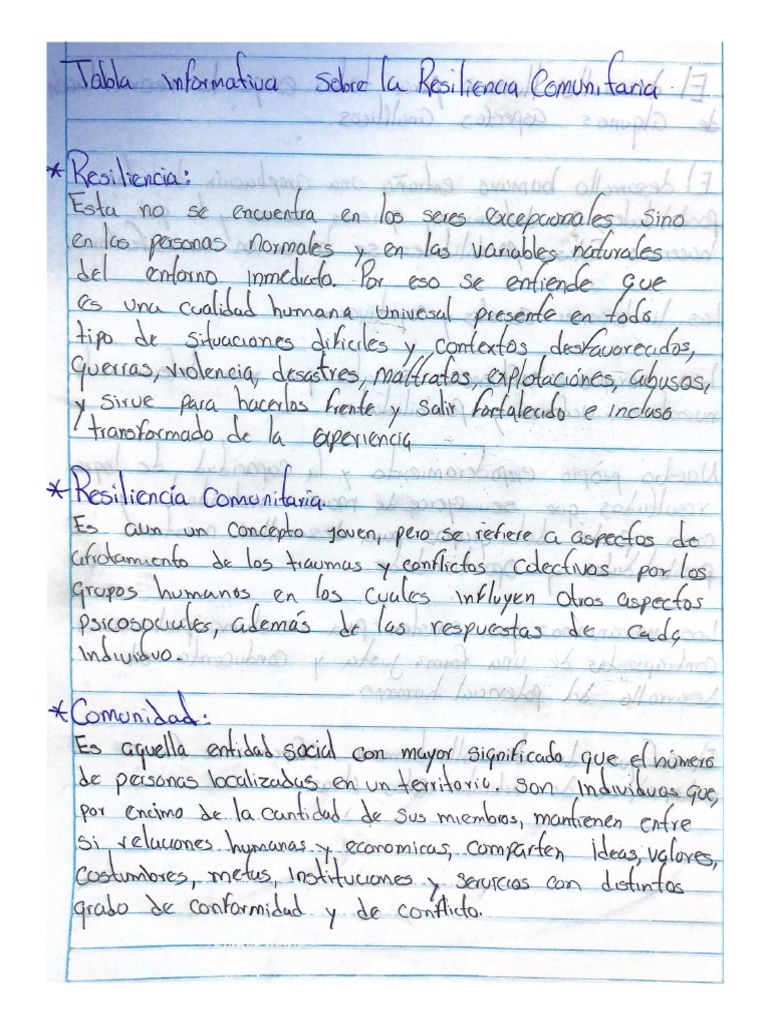 Tabla informativa sobre la Resiliencia Comunitaria.
* Resiliencia:
Esta no se encuentra en los seres excepcionales sino
en las personas normales y en las variables naturales
del entorno inmediato. Por eso se entiende que
es una cualidad humana univesal presente en todo
tipo de situaciones dificiles y contextos desfavorecidos,
guerras, violencia, desastres, maltratos, explotaciónes, abusos,
y sirve para hacerlos frente y salir fortalecido e incluso
transformado de la experiencia
* Resiliencia Comunitaria.
Es aun un concepto joven, pero se refiere a aspectos de
afrotamiento de los traumas y conflictos colectivos por los
grupos humanos en los cuales influyen otros aspectos
psicosociales, además de las respuestas de cada
individuo.
* Comunidad:
Es aquella entidad social con mayor significado que el número
de personas localizadas en un territorio. son individuos que,
por encima de la cantidad de sus miembros, mantienen entre
si, relaciones humanas y economicas, comparten ideas, valores,
costumbres, metas, instituciones y servicios con distintos
grado de conformidad y de conflicto.